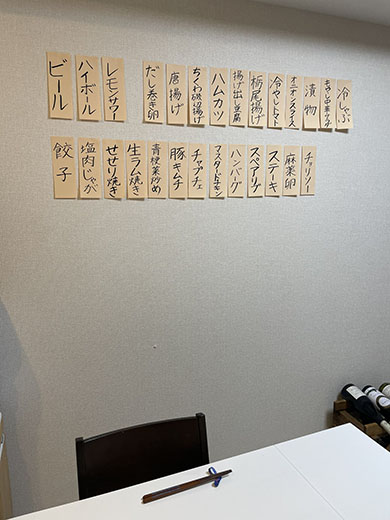 冷しゃぶ
漬物
オニオンスライス
冷やしトマト
栃尾揚げ
揚げ出し豆腐
ハムカツ
ちくわ磯辺揚げ
唐揚げ
だし巻き卵
レモンサワー
ハイボール
ビール
チョリソー
麻薬卵
ステーキ
スペアリブ
ハンバーグ
マスタードチキン
チャプチェ
豚キムチ
青梗菜炒め
生ラム焼き
せせり焼き
塩肉じゃが
餃子